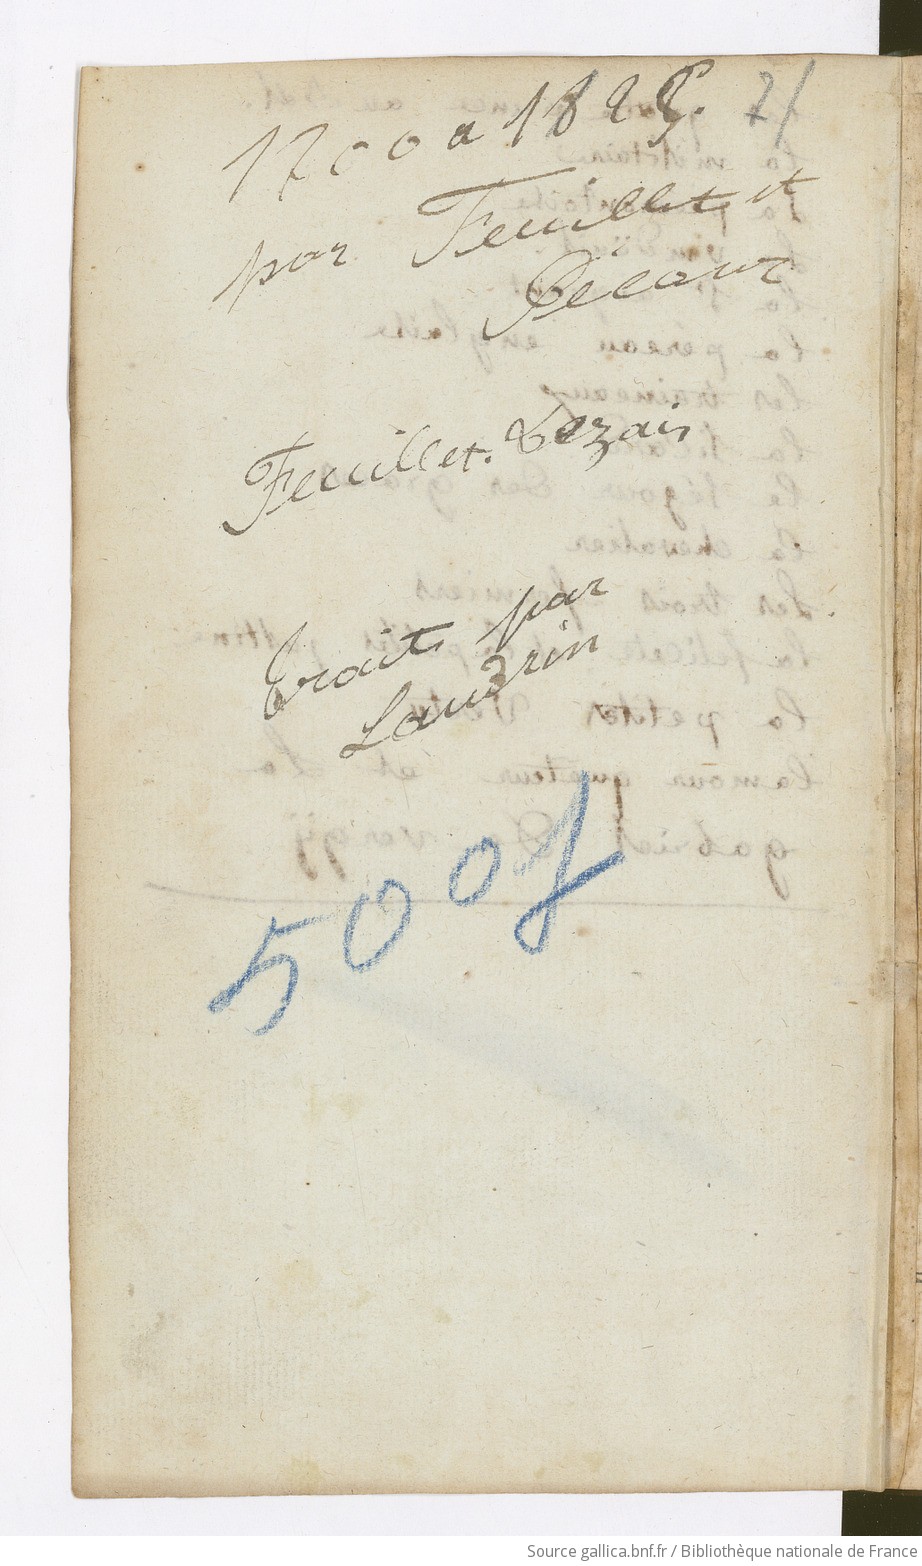 1700 a 1825. 2f
par Feuillet et
Pécour
Feuillet. Dezais
traité par
Landrin
500f
Source gallica.bnf.fr / Bibliothèque nationale de France